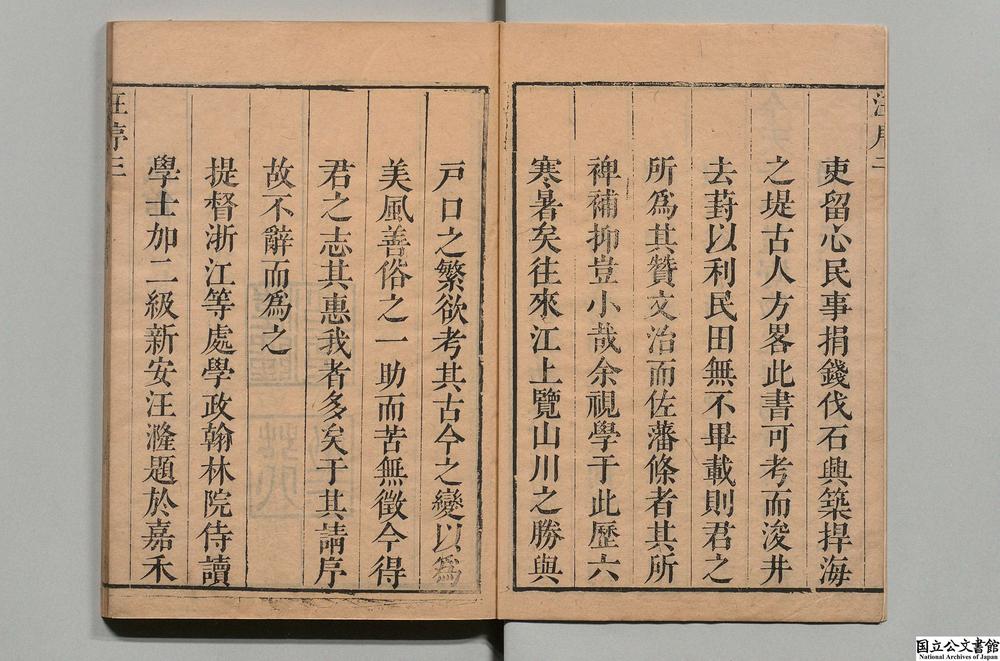 汪序二
吏留心民事捐錢伐石興築捍海
之堤古人方畧此書可考而浚井
去葑以利民田無不畢載則君之
所爲其贊文治而佐藩條者其所
裨補抑豈小哉余視學于此歷六
寒暑矣往來江上覽山川之勝與
戸口之繁欲考其古今之變以爲
美風善俗之一助而苦無徵今得
君之志其惠我者多矣于其請序
故不辭而爲之
提督浙江等處學政翰林院侍讀
學士加二級新安汪漋題於嘉禾
汪序三
国立公文書館
National Archives of Japan